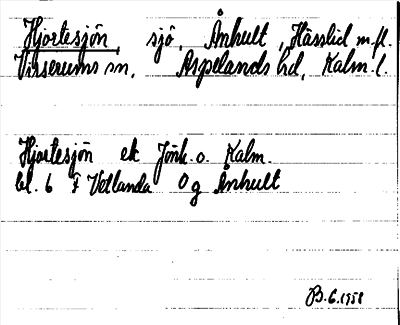 Hjortesjön, sjö, Ånhult, Hässlid m.fl.
Virserums sn, Aspelands hd, Kalm. l.
Hjortesjön ek Jönk. o. Kalm.
bl. 6 F Vetlanda Og Ånhult
B. G. 1958